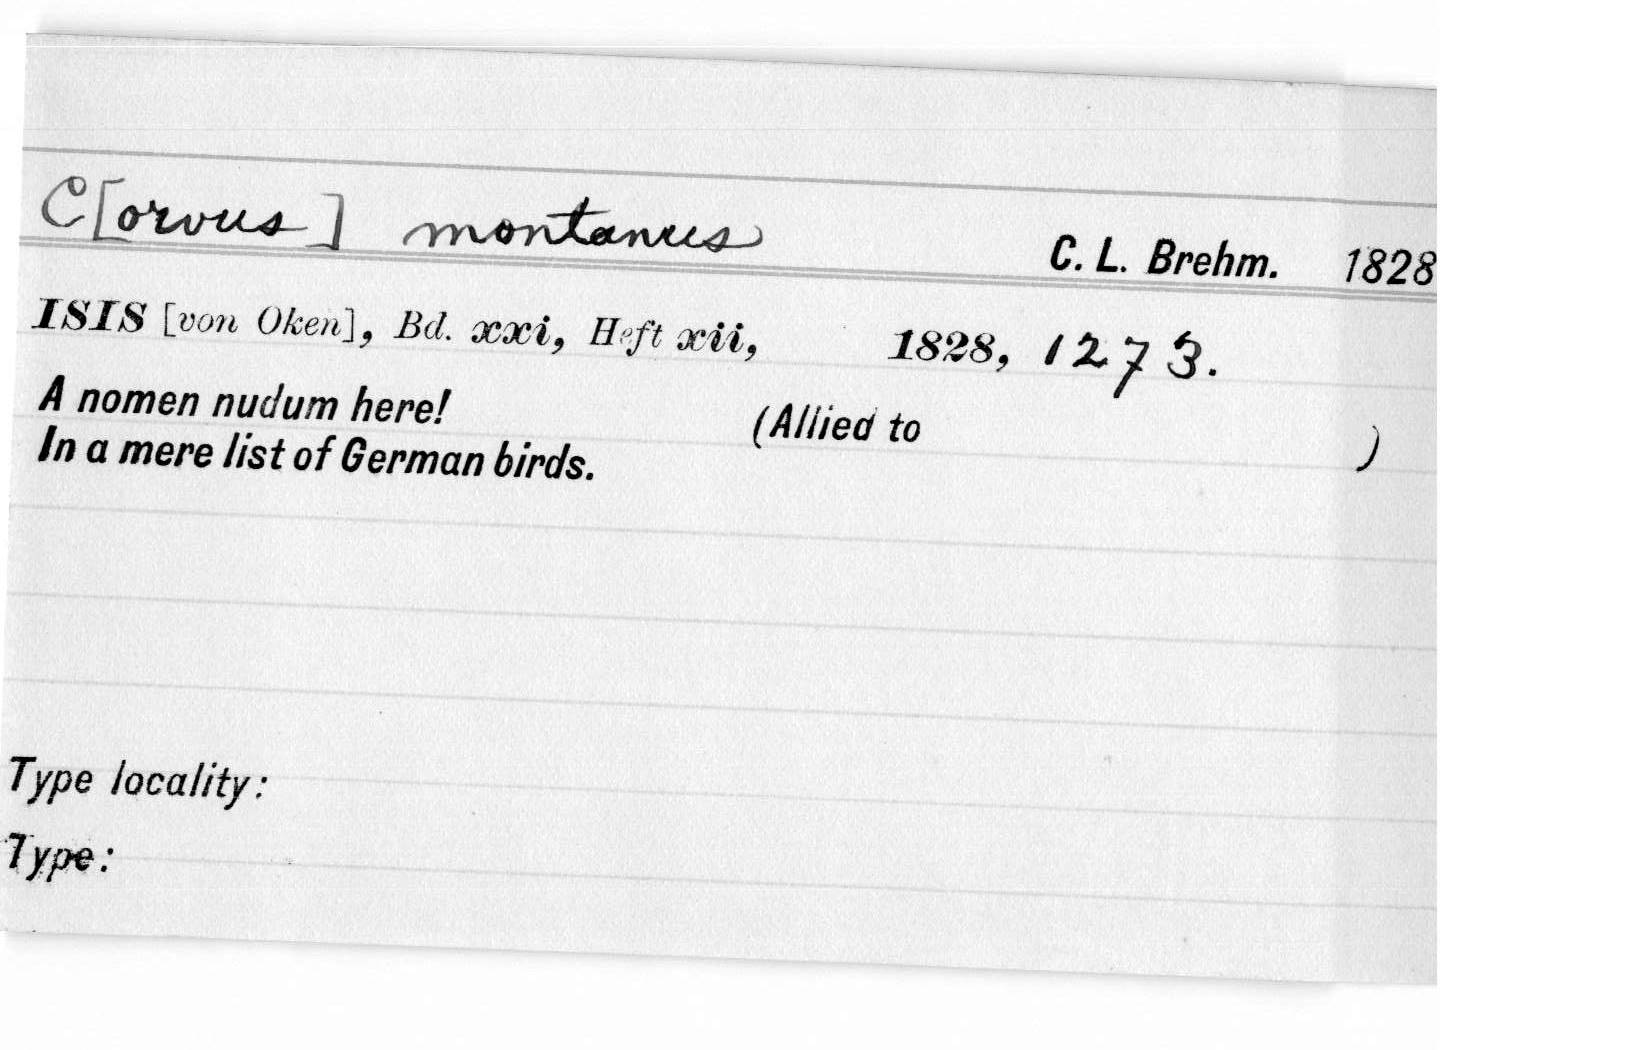 C[orvus] montanus C. L. Brehm. 1828
ISIS [von Oken], Bd. xxi, Heft xii, 1828, 1273.
A nomen nudum here! (Allied to )
In a mere list of German birds.
Type locality:
Type: